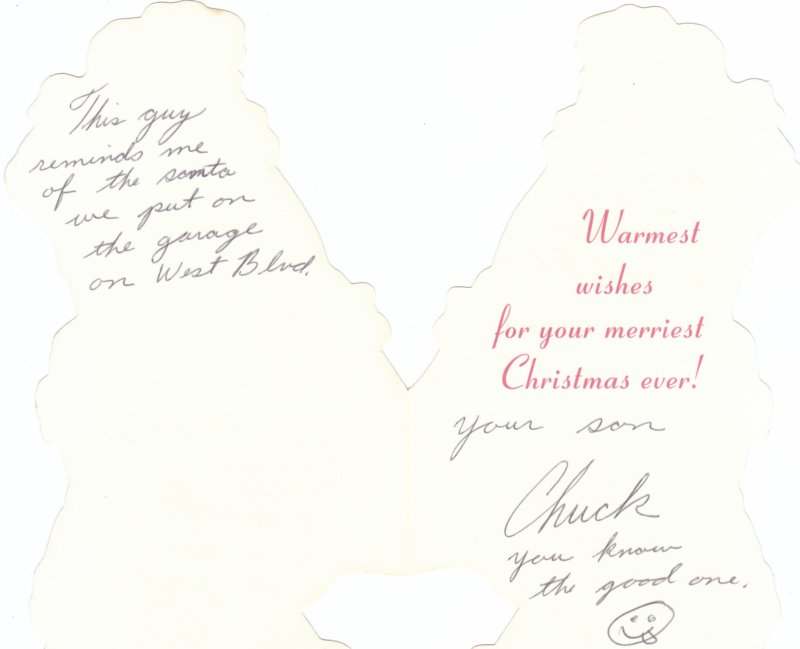 This guy
reminds me
of the santa
we put on
the garage
on West Blvd.
Warmest
wishes
for your merriest
Christmas ever!
your son
Chuck
you know
the good one.